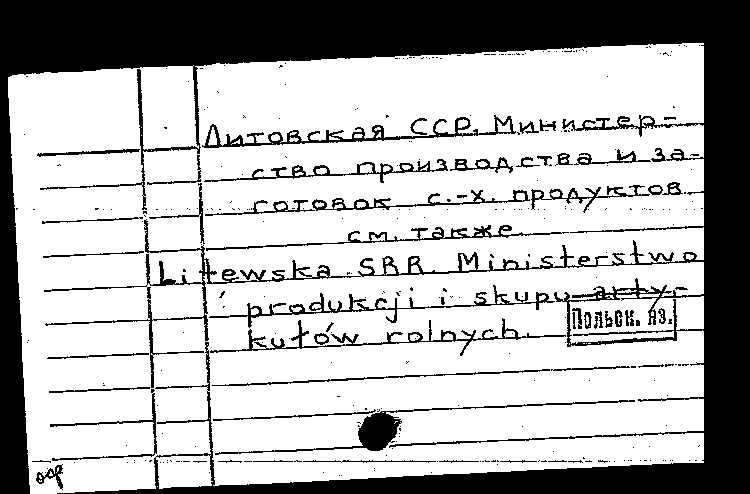 Литовская ССР. Министер-
ство производства и за-
готовок с.-х. продуктов
см. также
Litewska SRR. Ministerstwo
produkcji i skupu arty-
kułów rolnych.
Польск. яз.